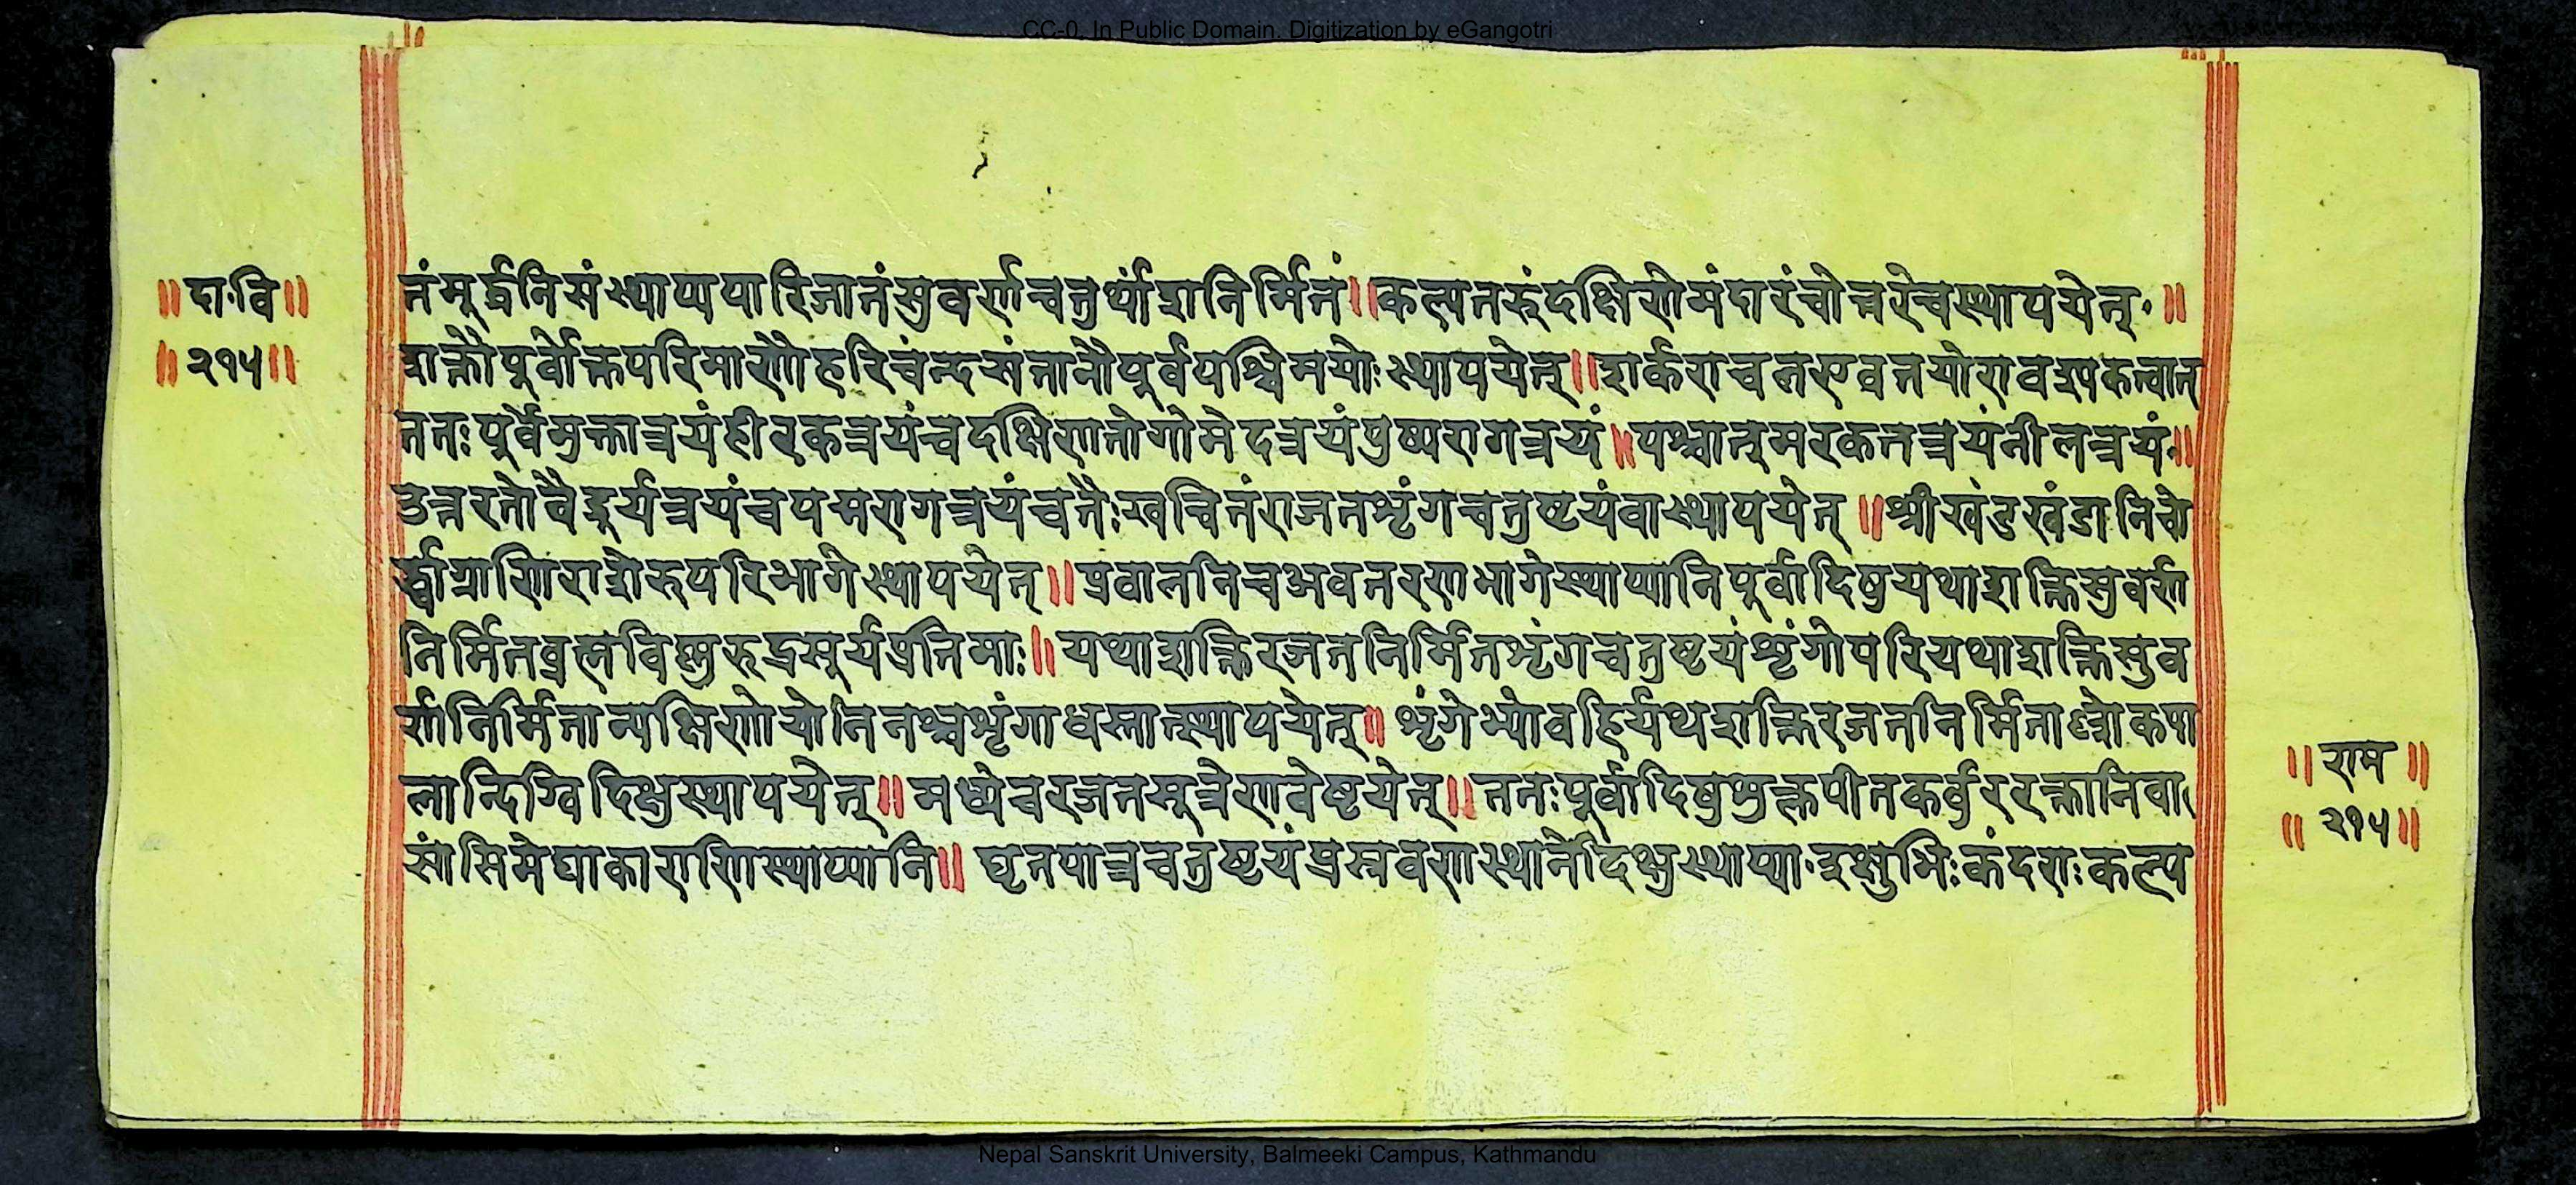 CC-0. In Public Domain. Digitization by eGangotri
॥दा.वि॥
॥२१५॥
तंमूर्द्धनिसंस्थाप्यपारिजातंसुवर्णचतुर्थांशनिर्मितं॥कल्पतरुंदक्षिणेमंदारंचोत्तरेचस्थापयेत्॰॥
शक्तौपूर्वोक्तपरिमाणौहरिचंन्दसंतानौपूर्वपश्चिमयोःस्थापयेत्॥शर्कराचलएवतयोरावश्यकत्वात्
ततःपूर्वेमुक्तात्रयंहीरकत्रयंचदक्षिणतोगोमेदत्रयंपुष्परागत्रयं॥पश्चात्मरकतत्रयंनीलत्रयं॰॥
उत्तरतोवैदूर्यत्रयंचपद्मरागत्रयंचतैःखचितंराजतशृंगचतुष्टयंवास्थापयेत्॥श्रीखंडखंडानिचो
र्द्ध्वाग्राणिराशेरुपरिभागेस्थापयेत्॥प्रवाललतिचअवतरणभागेस्थाप्यानिपूर्वादिषुयथाशक्तिसुवर्ण
निर्मितब्रह्मविष्णुरुद्रसूर्यप्रतिमाः॥यथाशक्तिरजतनिर्मितशृंगचतुष्टयंशृंगोपरियथाशक्तिसुव
र्णनिर्मितान्पक्षिणोयोतितश्चशृंगाधस्तात्स्थापयेत्॥शृंगेभ्योवहिर्यथशक्तिरजतनिर्मिताष्टोकपा
लान्दिग्विदिक्षुस्थापयेत्॥मध्येचरजतसूत्रेणवेष्टयेत्॥ततःपूर्वादिषुशुक्लपीतकर्वुररक्तानिवा
सांसिमेघाकाराणिस्थाप्यानि॥घृतपात्रचतुष्टयंप्रस्रवणस्थानेदिक्षुस्थाप्या॰इक्षुभिःकंदराःकल्प
॥राम॥
॥२१५॥
Nepal Sanskrit University, Balmeeki Campus, Kathmandu